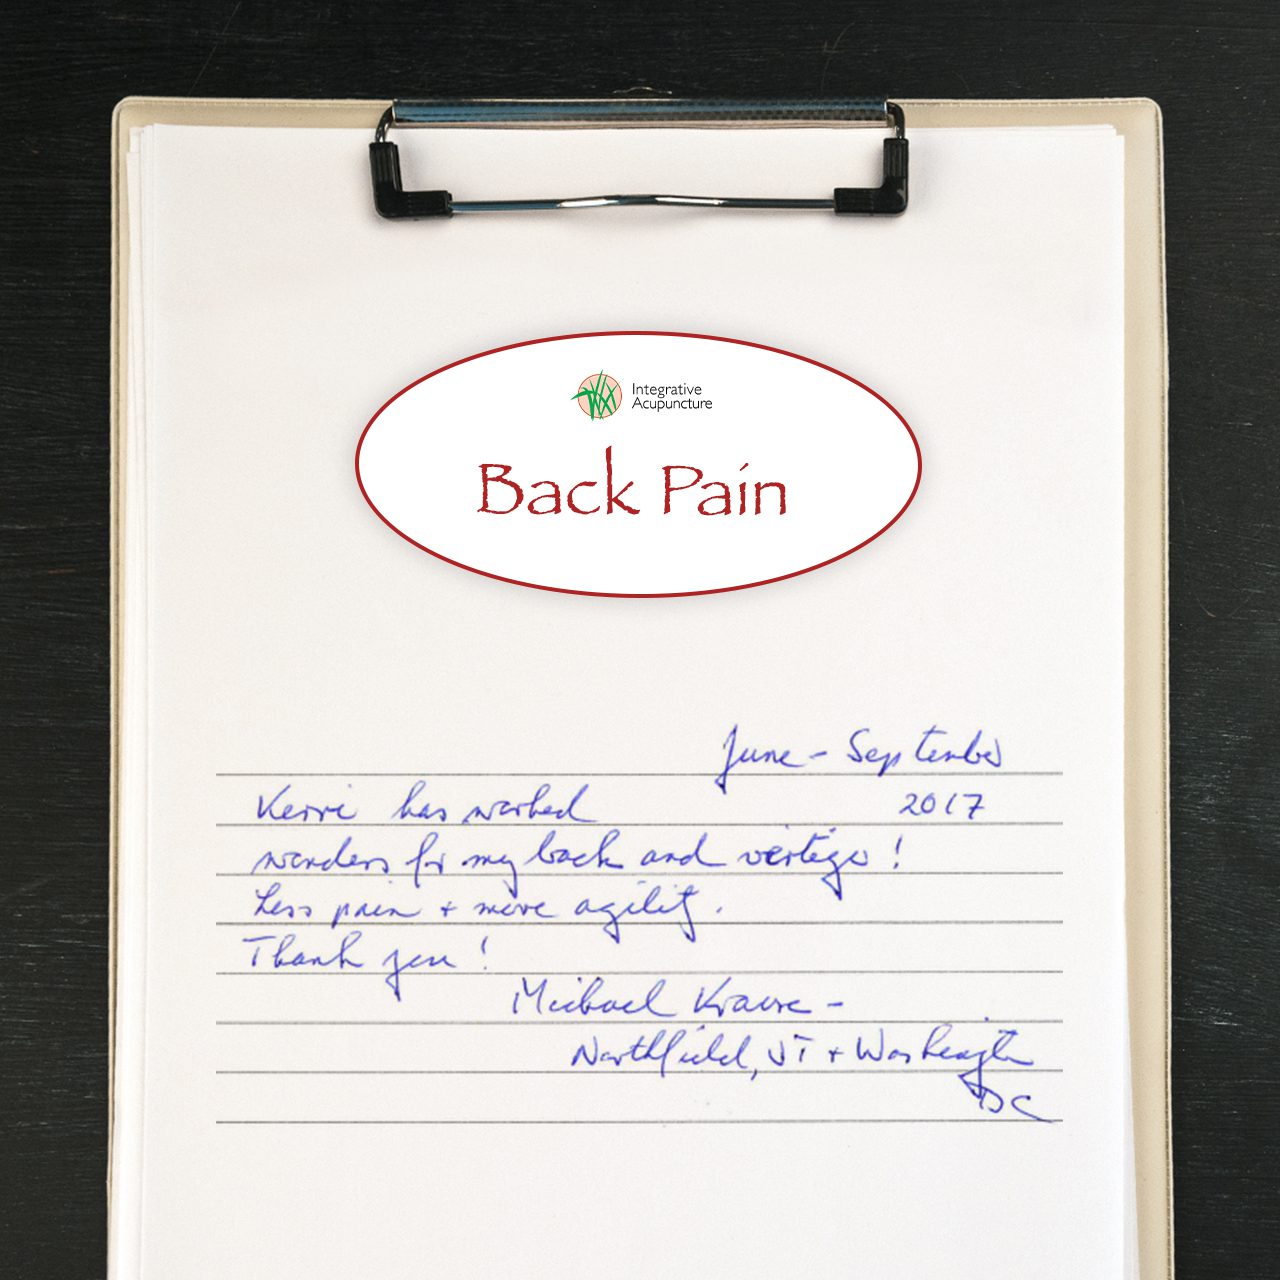 Integrative
Acupuncture
Back Pain
June - September
2017
Kerri has worked
wonders for my back and vertigo!
Less pain + more agility.
Thank you!
Michael Krause -
Northfield, VT + Washington
DC